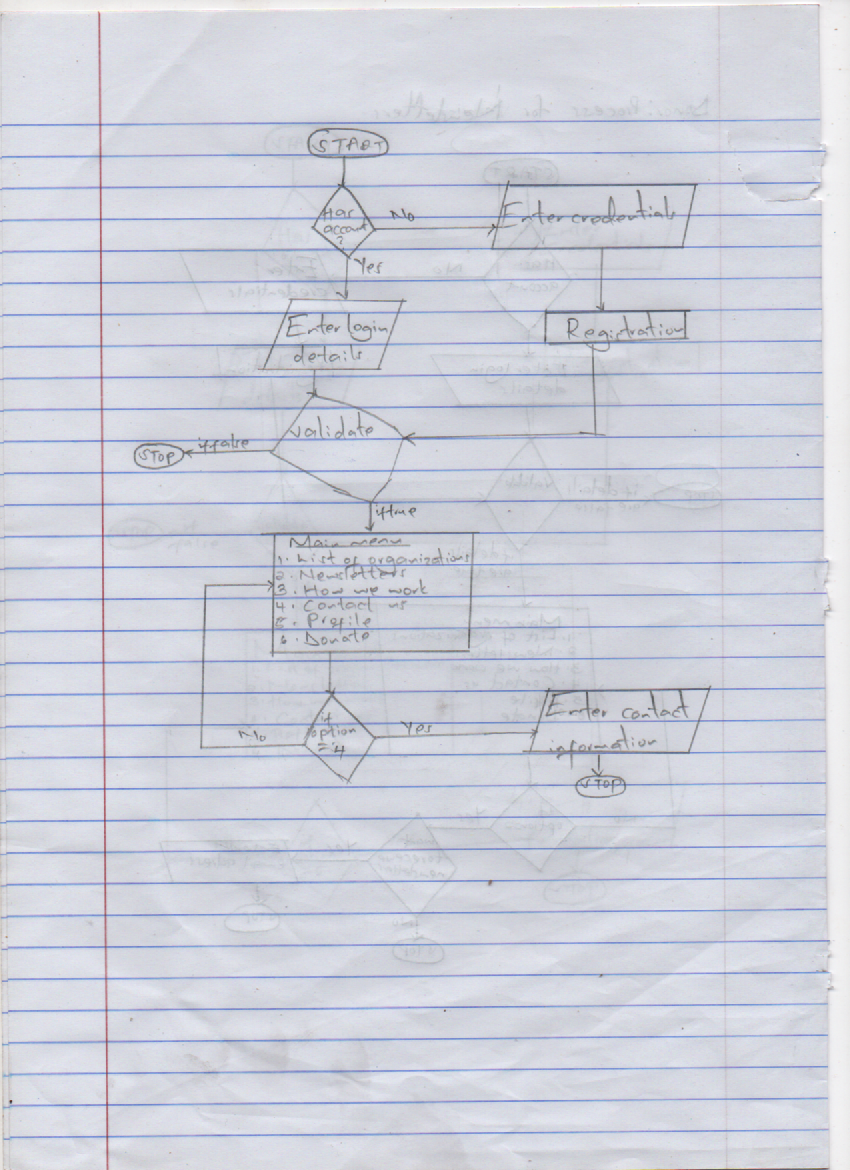 START
Has
account
?
No
Enter credentials
Yes
Enter login
details
Registration
validate
if false
STOP
if true
Main menu
1. List of organizations
2. Newsletters
3. How we work
4. Contact us
5. Profile
6. Donate
if
option
= 4
No
Yes
Enter contact
information
STOP